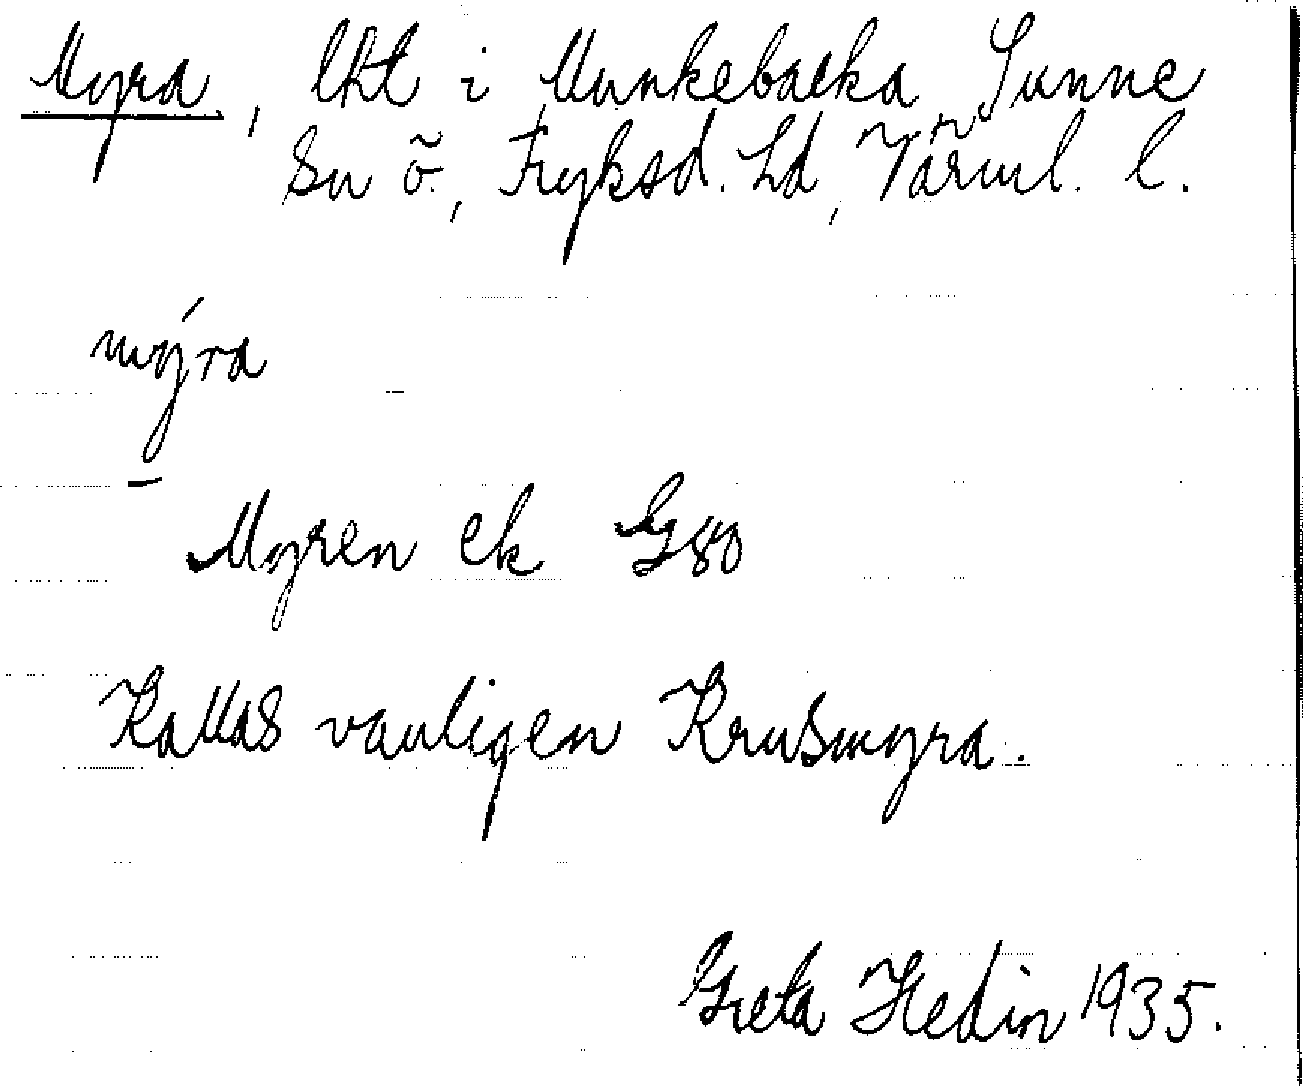 Myra, lht i Munkebacka Sunne
sn ö., Fryksd. hd, Värml. l.
mýra
Myren ek G 80
Kallas vanligen Krusmyra.
Greta Hedin 1935.